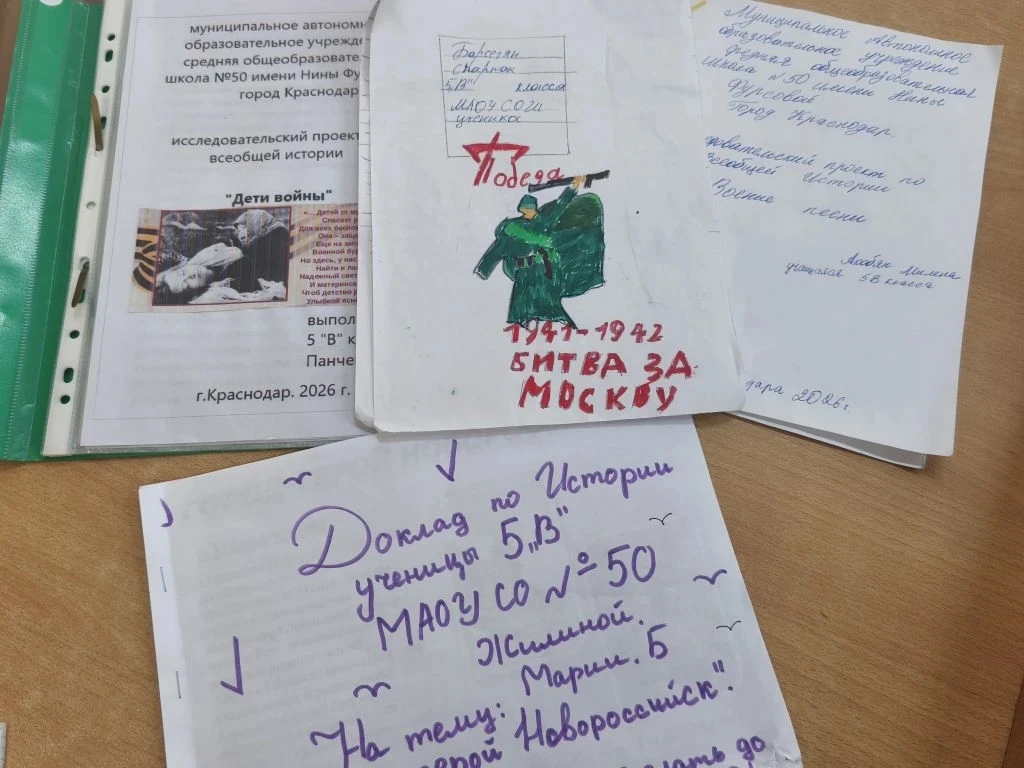 муниципальное автоном
образовательное учрежде
средняя общеобразовате
школа №50 имени Нины Фу
город Краснодар
исследовательский проект
всеобщей истории
"Дети войны"
«... Детей от м
Спасает р
Для всех беспо
Она – защи
Еще на запа
Военной бур
Но здесь, у нас
Найти и ла
Надежный свет
И материнс
Чтоб детство р
Улыбкой ясн
выпол
5 "В" к
Панче
г.Краснодар. 2026 г.
Барсегян
Спартак
5,В" класса
МАОУ СОШ
ученика
Победа
1941-1942
БИТВА ЗА
МОСКВУ
Муниципальное Автономное
образовательное учреждение
средняя общеобразовательная
школа №50 имени Нины
Фурсовой
Город Краснодар.
довательский проект по
всеобщей Истории
Военые песни
Акобян Милена
учащаяся 5В класса
дара 2026г.
Доклад по Истории
ученицы 5„В"
МАОУ СО №50
Жилиной.
Марии. Б
На тему:
ерой Новороссийск".
до